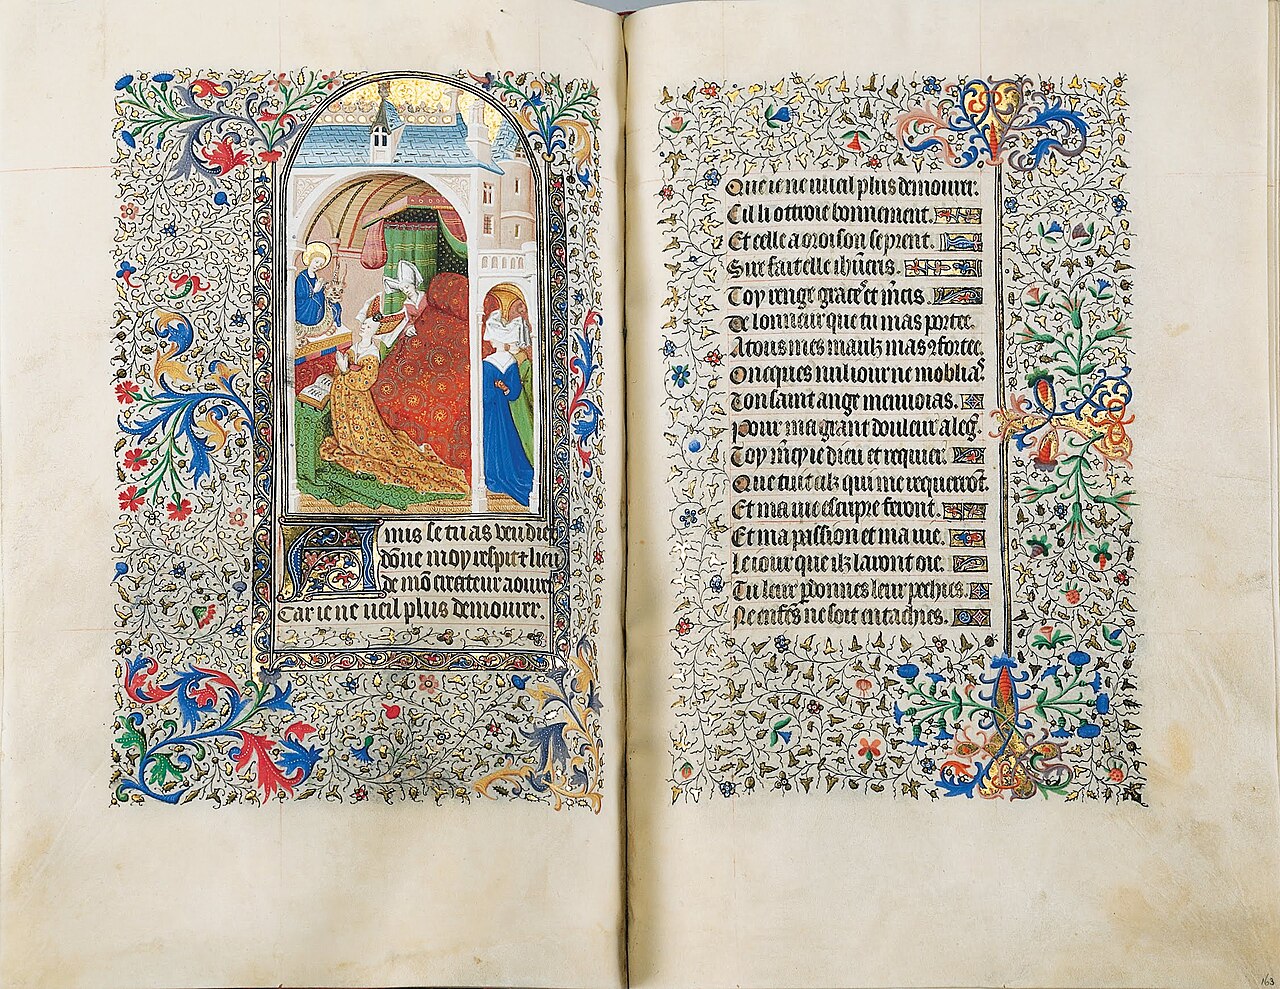 Amis se tu as ven die
dōne moy respit ⁊ lieu
de mō createur aourer
Car ie ne ueil plus demourer.
Que ie ne uueil plus demourer.
Cil li ottroie bonnement.
Et celle a oroison se prent.
Sire fait elle ih̄ucris.
Toy renge graces et m̄cis.
De lonneur que tu mas portee.
A tous mes maulz mas ꝯfortee.
Oncques nul iour ne moblias
Ton saint ange menuoias.
Pour ma grant douleur aleg̾.
Toy m̄cye dieu et requier.
Que tuit cilz qui me requerrōt.
Et ma uie escripre feront.
Et ma passion et ma uie.
Le iour que ilz lauont oie.
Tu leur ꝑdonnes leur pechies.
Ne enfēs ne soit entachies.
163